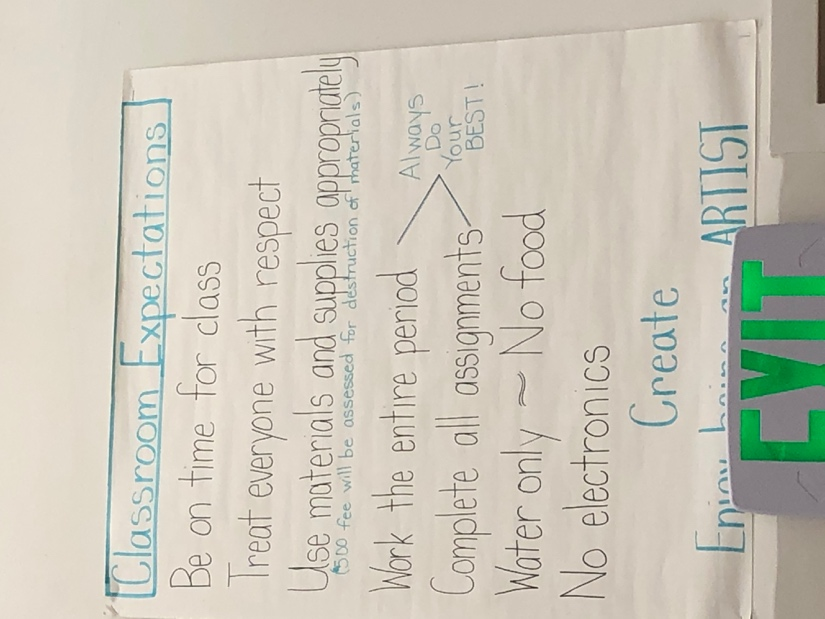 Classroom Expectations
Be on time for class
Treat everyone with respect
Use materials and supplies appropriately
($500 fee will be assessed for destruction of materials)
Work the entire period
Complete all assignments
Always
Do
Your
BEST!
Water only ~ No food
No electronics
Create
Enjoy being an ARTIST
EXIT